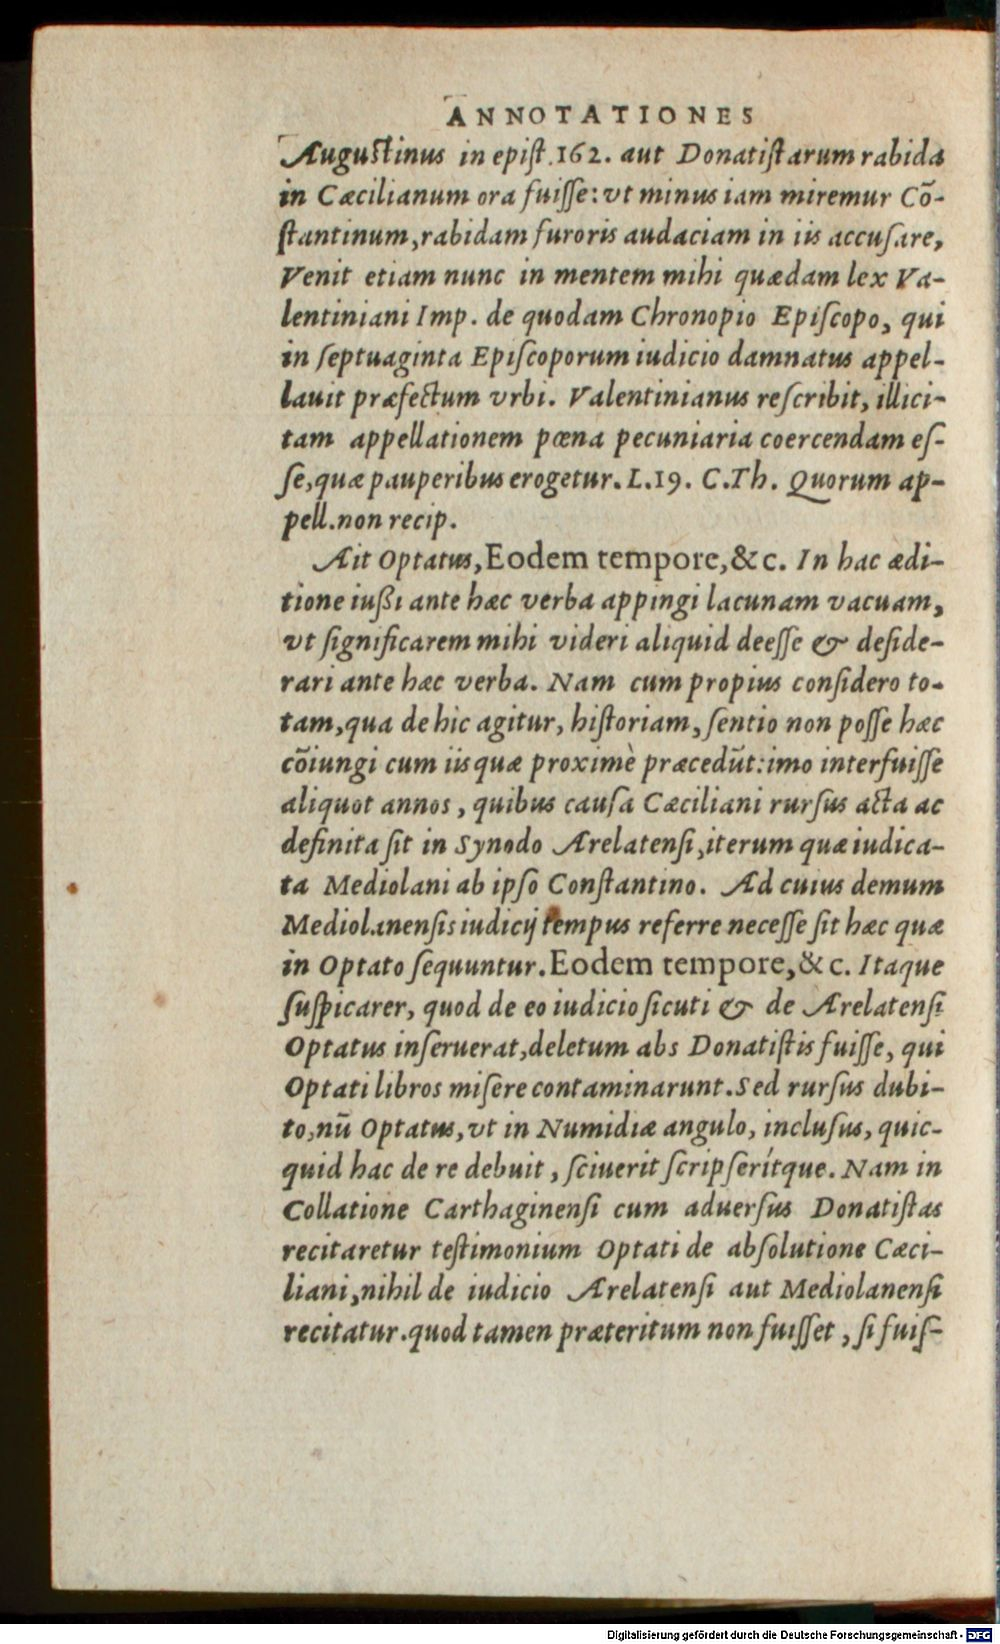 ANNOTATIONES
Augustinus in epist.162. aut Donatistarum rabida
in Cæcilianum ora fuisse: vt minus iam miremur Cõ-
stantinum, rabidam furoris audaciam in iis accusare,
Venit etiam nunc in mentem mihi quædam lex Va-
lentiniani Imp. de quodam Chronopio Episcopo, qui
in septuaginta Episcoporum iudicio damnatus appel-
lauit præfectum vrbi. Valentinianus rescribit, illici-
tam appellationem pœna pecuniaria coercendam es-
se, quæ pauperibus erogetur. L.19. C.Th. Quorum ap-
pell. non recip.
Ait Optatus, Eodem tempore, &c. In hac ædi-
tione iußi ante hæc verba appingi lacunam vacuam,
vt significarem mihi videri aliquid deesse & deside-
rari ante hæc verba. Nam cum propius considero to-
tam, qua de hic agitur, historiam, sentio non posse hæc
cõiungi cum iis quæ proximè præcedũt: imo interfuisse
aliquot annos, quibus causa Cæciliani rursus acta ac
definita sit in Synodo Arelatensi, iterum quæ iudica-
ta Mediolani ab ipso Constantino. Ad cuius demum
Mediolanensis iudicij tempus referre necesse sit hæc quæ
in Optato sequuntur. Eodem tempore, &c. Itaque
suspicarer, quod de eo iudicio sicuti & de Arelatensi
Optatus inseruerat, deletum abs Donatistis fuisse, qui
Optati libros misere contaminarunt. Sed rursus dubi-
to, nũ Optatus, vt in Numidiæ angulo, inclusus, quic-
quid hac de re debuit, sciuerit scripserítque. Nam in
Collatione Carthaginensi cum aduersus Donatistas
recitaretur testimonium Optati de absolutione Cæci-
liani, nihil de iudicio Arelatensi aut Mediolanensi
recitatur. quod tamen præteritum non fuisset, si fuis-
Digitalisierung gefördert durch die Deutsche Forschungsgemeinschaft - DFG